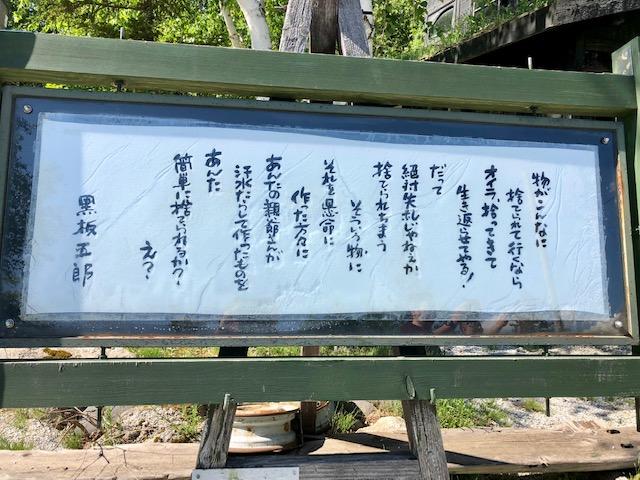 物がこんなに
捨てられて行くなら
オイラ、捨ってきて
生き返らせてやる!
だって
絶対失礼じゃねぇか
捨てられちまう
そういう物に
それを懸命に
作った方々に
あんたの親爺さんが
汗水たらして作ったものを
あんた
簡単に捨てられるか?
え?
黒板五郎